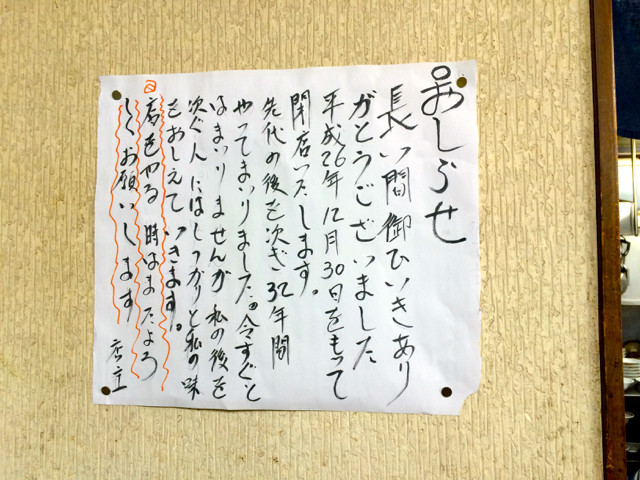 おしらせ
長い間御ひいきあり
がとうございました
平成26年12月30日をもって
閉店いたします。
先代の後を次ぎ32年間
やってまいりました。今すぐと
はまいりませんが私の後を
次ぐ人にはしっかりと私の味
をおしえていきます。
店をやる時はまたよろ
しくお願いします
店主